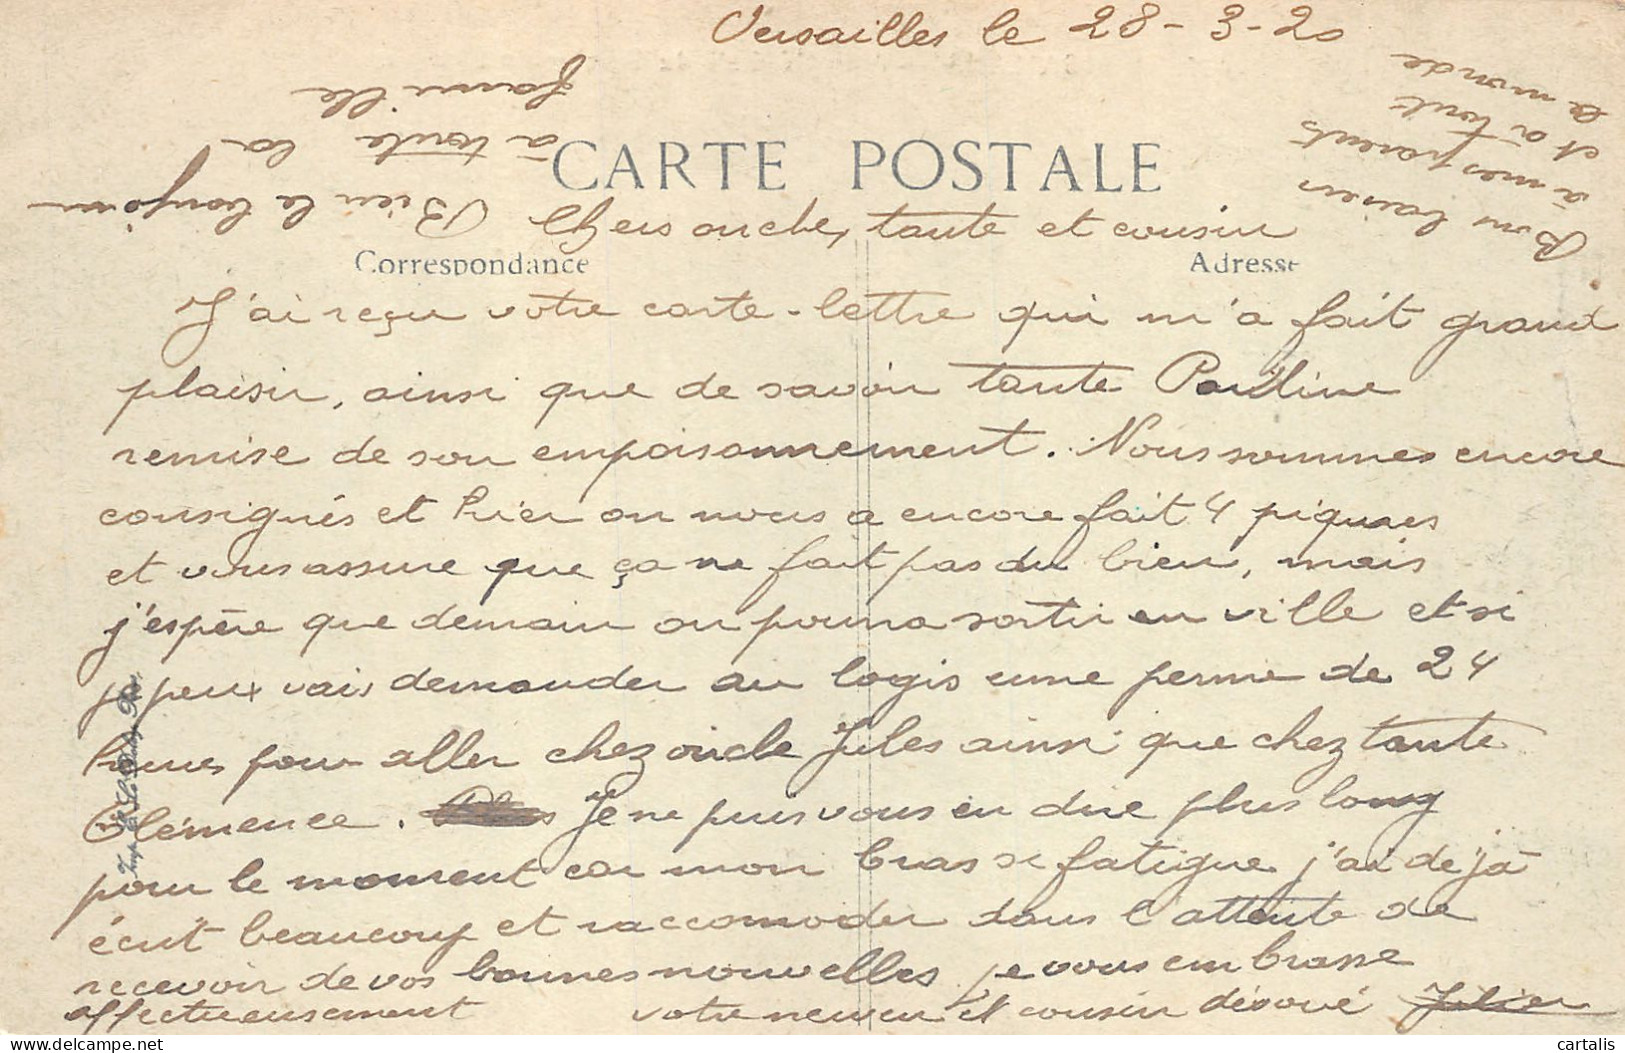 Versailles le 28-3-20
CARTE POSTALE
Chers oncle, tante et cousin
Correspondance
Adresse
J'ai reçu votre carte-lettre qui m'a fait grand
plaisir, ainsi que de savoir tante Pauline
remise de son empoisonnement. Nous sommes encore
consignés et hier on nous a encore fait 4 piqures
et vous assure que ça ne fait pas du bien, mais
j'espère que demain on pourra sortir en ville et si
je peux vais demander au logis une perme de 24
heures pour aller chez oncle Jules ainsi que chez tante
Clémence. Je ne puis vous en dire plus long
pour le moment car mon bras se fatigue j'ai déjà
écrit beaucoup et raccomoder dans l'attente de
recevoir de vos bonnes nouvelles je vous embrasse
affectueusement votre neveu et cousin dévoué
Bien le bonjour
à toute la
famille
Bons baisers
à mes parents
et à tout
le monde
Imp.
cartalis